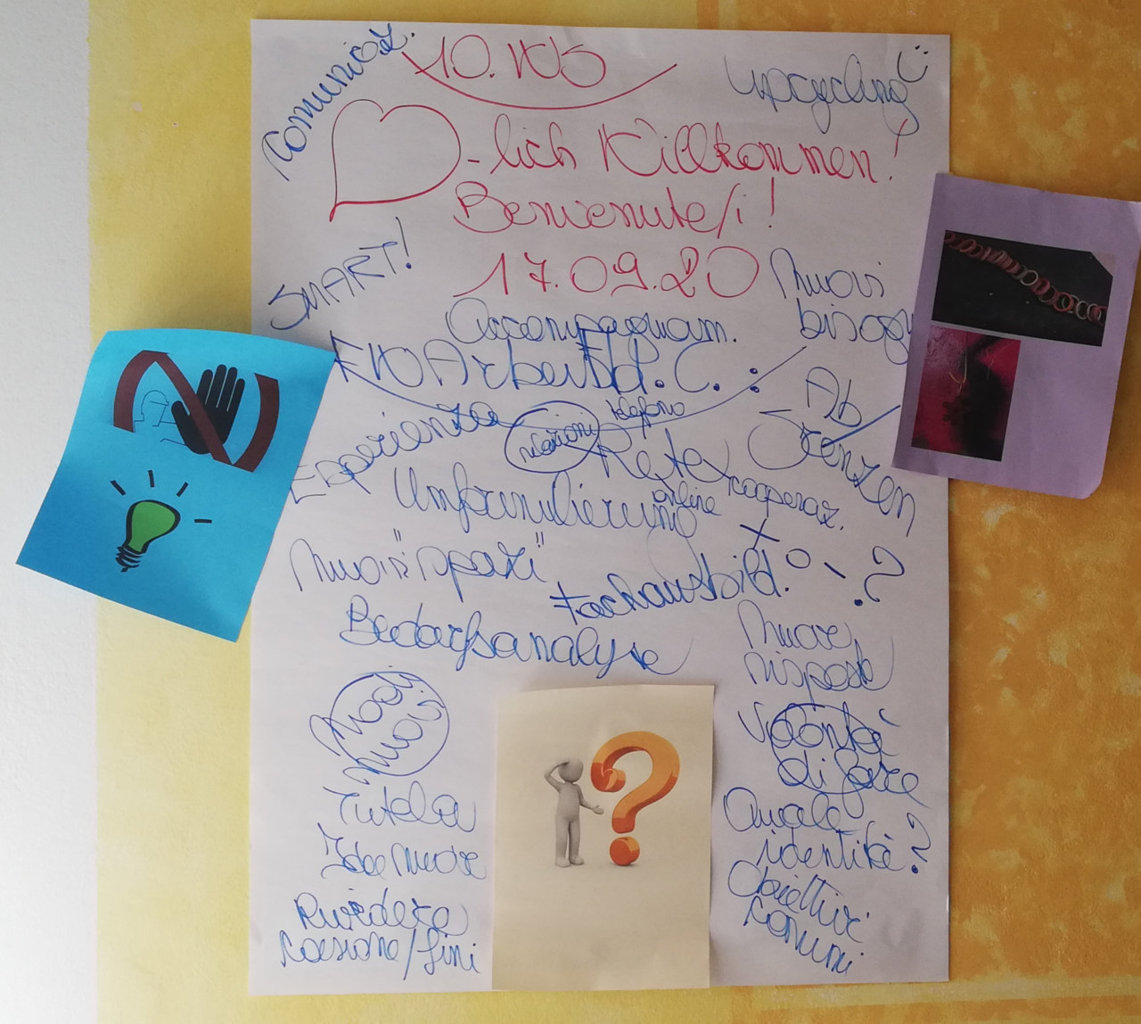 Comunicaz.
10. WS
Upcycling
-lich Willkommen!
Benvenute/i!
17.09.20
SMART!
Nuovi
bisog
Accompagnam.
FWArbeitId.C.:
Ab
Grenzen
Esperienza
relazioni
telefono
Rete
online
cooperaz.
Umformulierung
Nuovi "spazi"
+
Fachausbild.
?
Bedarfsanalyse
Nuove
rispost
Modi
nuovi
Volontà
di fare
Tutela
Quale
identità?
Idee nuove
Obiettivi
comuni
Rivedere
coesione/fini